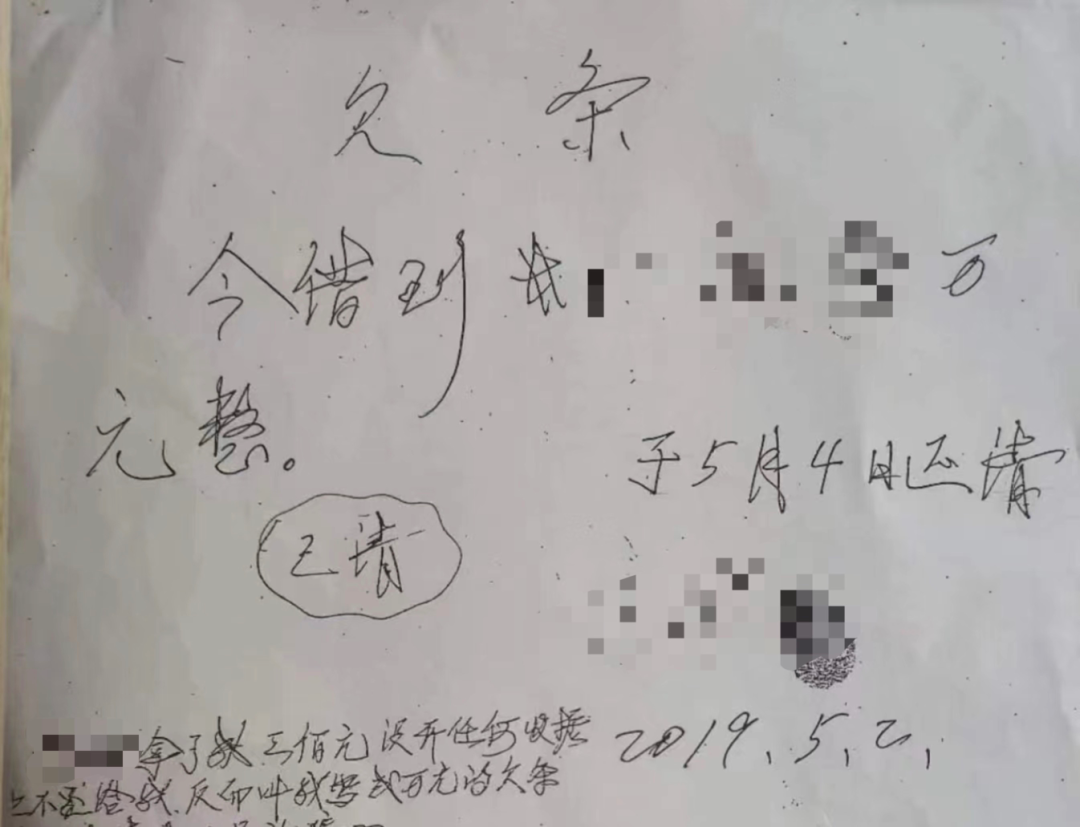 欠条
今借到 万
元整。 于5月4日还清
已清
2019.5.2.
拿了我三佰元没开任何收据
不还给我.反而叫我写贰万元的欠条